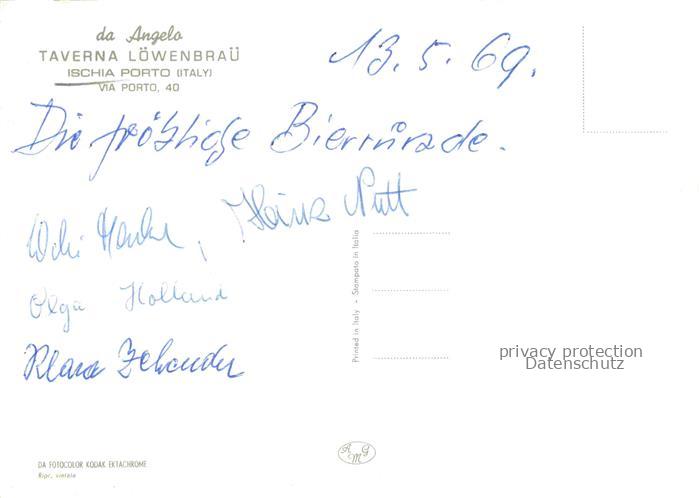 da Angelo
TAVERNA LÖWENBRAÜ
ISCHIA PORTO (ITALY)
VIA PORTO, 40
13.5.69.
Die fröhliche Bierrunde.
Heinz Nutt
Olga Holland
Klara Zehender
Printed in Italy • Stampato in Italia
privacy protection
Datenschutz
DA FOTOCOLOR KODAK EKTACHROME
Ripr. vietata
AMG